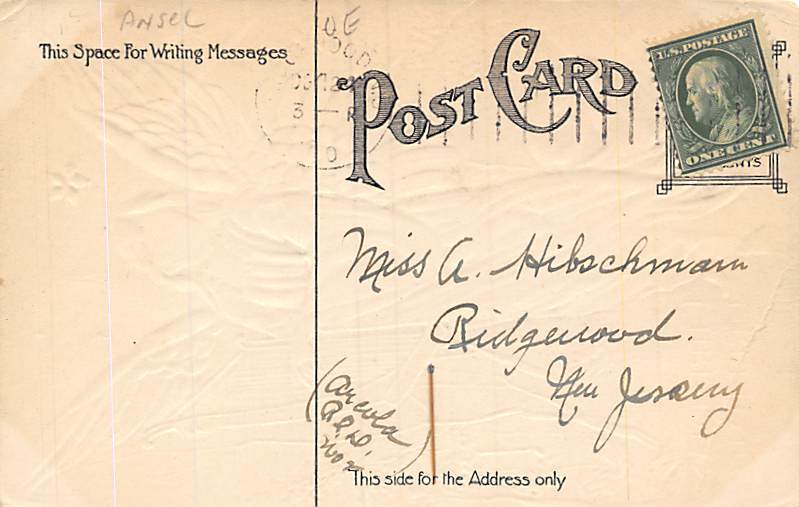 ANSEL
This Space For Writing Messages
POST CARD
U.S. POSTAGE
ONE CENT
Miss A. Hibschmam
Ridgewood.
New Jersey
(Arcola
R.F.D.
This side for the Address only